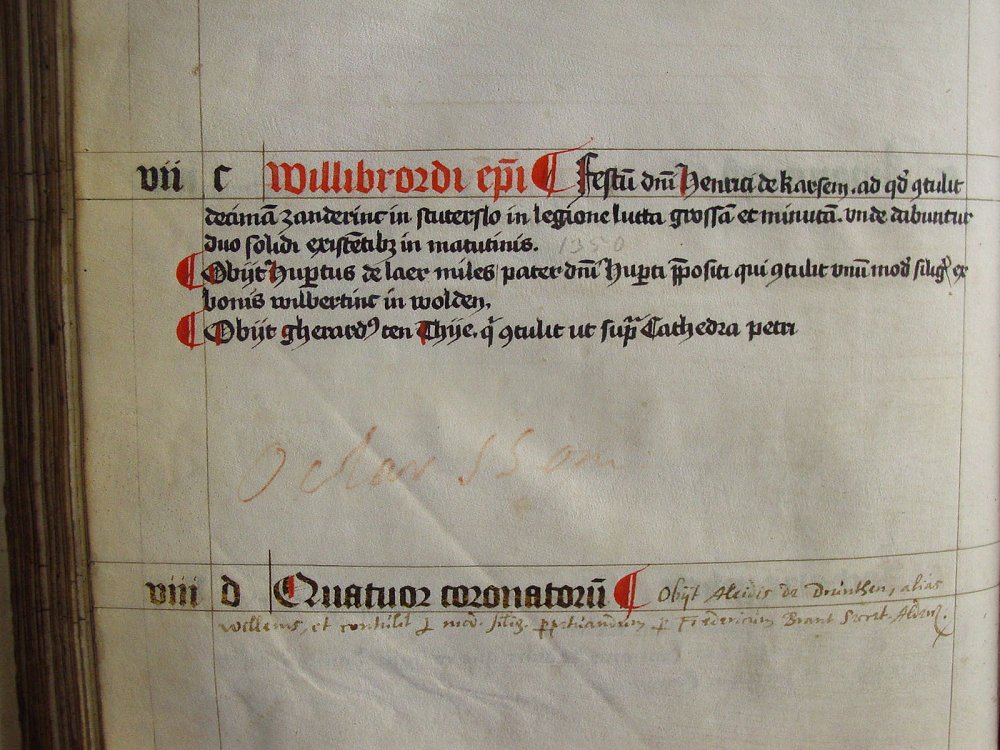 vii c Willibrordi ep̄i ¶ Festū dn̄i Henrici de karsem. ad qd̓ ꝯtulit
decimā zanderinc in stuterslo in legione lutta grossā et minutā. vnde dabuntur
duo solidi existētibꝫ in matutinis. 1350
¶ Obijt Hup̱tus de laer miles pater dn̄i Hup̱ti p̄positi qui ꝯtulit vnū mod̓ silig̓ ex
bonis wilbertinc in wolden.
¶ Obijt gherardꝰ ten Thije. q̓ ꝯtulit ut sup̄ Cathedra petri
viii d Quatuor coronatorū ¶ Obijt Aleidis de Drunthen, alias
Willems, et contulit j mod. silig. ꝑpetuandum ꝑ Fredericum Brant Secret. Aldenz.